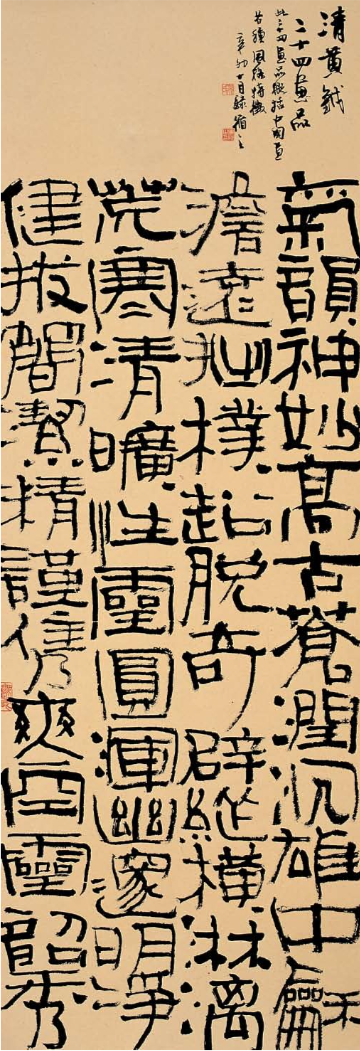 清黃鉞
二十四畫品
此二十四畫品概括中國畫
各種風格特徵
辛卯十月錄
氣韻神妙高古蒼潤沉雄中龢
澹遠拙樸超脫奇辟縱橫淋漓
荒寒清曠性靈圓渾幽邃明淨
健拔簡潔精謹雋爽空靈韶秀